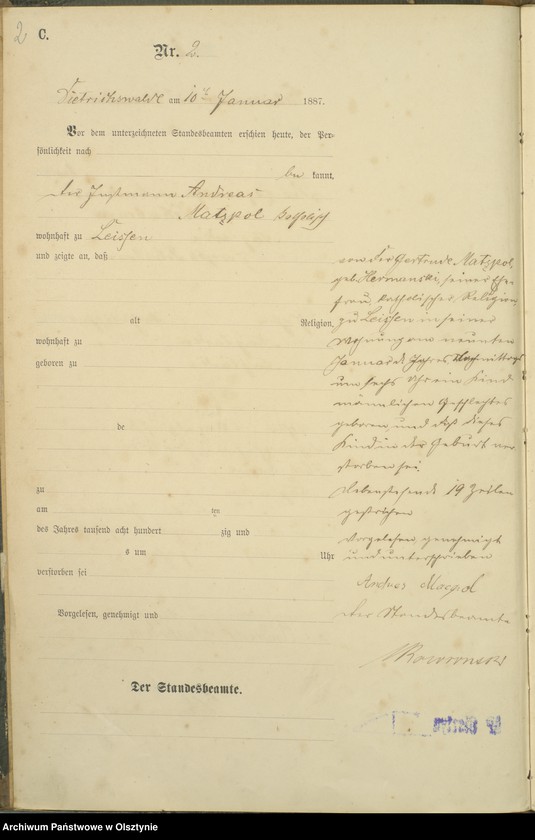 2
C.
Nr. 2.
Dietrichswalde am 10ten Januar 1887.
Vor dem unterzeichneten Standesbeamten erschien heute, der Per-
sönlichkeit nach
be kannt,
der Instmann Andreas
Matzpol katholisch
wohnhaft zu Leissen
und zeigte an, daß
alt Religion,
wohnhaft zu
geboren zu
de
zu
am ten
des Jahres tausend acht hundert zig und
s um Uhr
verstorben sei
Vorgelesen, genehmigt und
Der Standesbeamte.
von der Gertrude Matzpol,
geb. Hermanski, seiner Ehe-
frau, katholischer Religion
zu Leissen in seiner
Wohnung am neunten
Januar d. Jahres Nachmittags
um sechs Uhr ein Kind
männlichen Geschlechts
geboren, und daß dieses
Kind in der Geburt ver-
storben sei.
Nebenstehende 19 Zeilen
gestrichen
Vorgelesen, genehmigt
und unterschrieben
Andreas Macpol
Der Standesbeamte
Archiwum Państwowe w Olsztynie